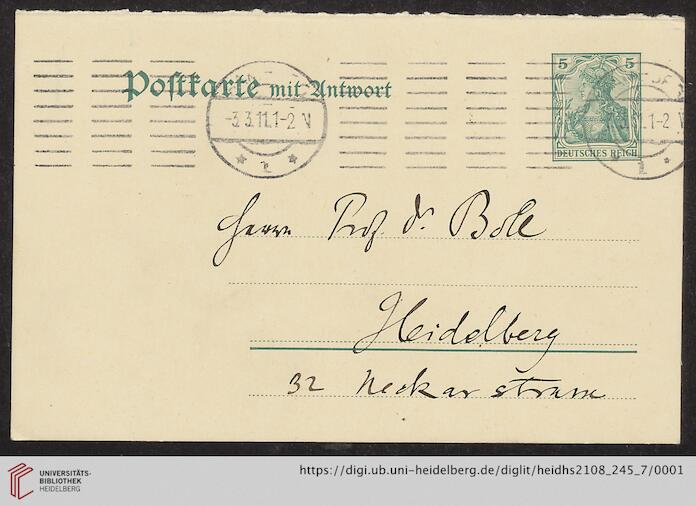 Postkarte mit Antwort
-3.3.11.1-2 V
5 5
DEUTSCHES REICH
1-2 V
Herrn Prof. Dr. Boll
Heidelberg
32 Neckarstrasse
UNIVERSITÄTS-
BIBLIOTHEK
HEIDELBERG
https://digi.ub.uni-heidelberg.de/diglit/heidhs2108_245_7/0001